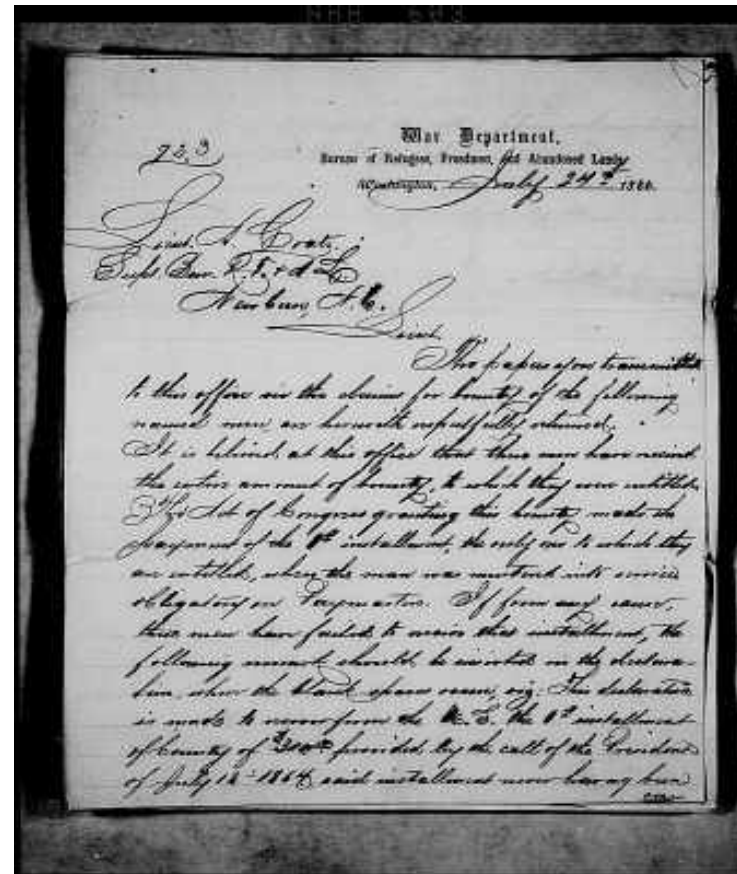 War Department,
723
Bureau of Refugees, Freedmen, and Abandoned Lands
Washington, July 24th 1866.
Lieut. A. Coats.
Supt. Bur. R. F. & A. L.
New Bern, N.C.
Lieut.
The papers you transmitted
to this office in the claims for bounty of the following
named men are herewith respectfully returned.
It is believed at this office that these men have received
the entire amount of bounty, to which they were entitled.
The Act of Congress granting this bounty, made the
payment of the 1st installment, the only one to which they
are entitled, when the man was mustered into service
obligatory on Paymasters. If from any cause,
these men have failed to receive this installment, the
following remark should be inserted in the declara-
tion, where the blank space occurs, viz: This declaration
is made to recover from the U.S. the 1st installment
of bounty of $300 provided by the call of the President
of July 18th 1864, said installment never having been